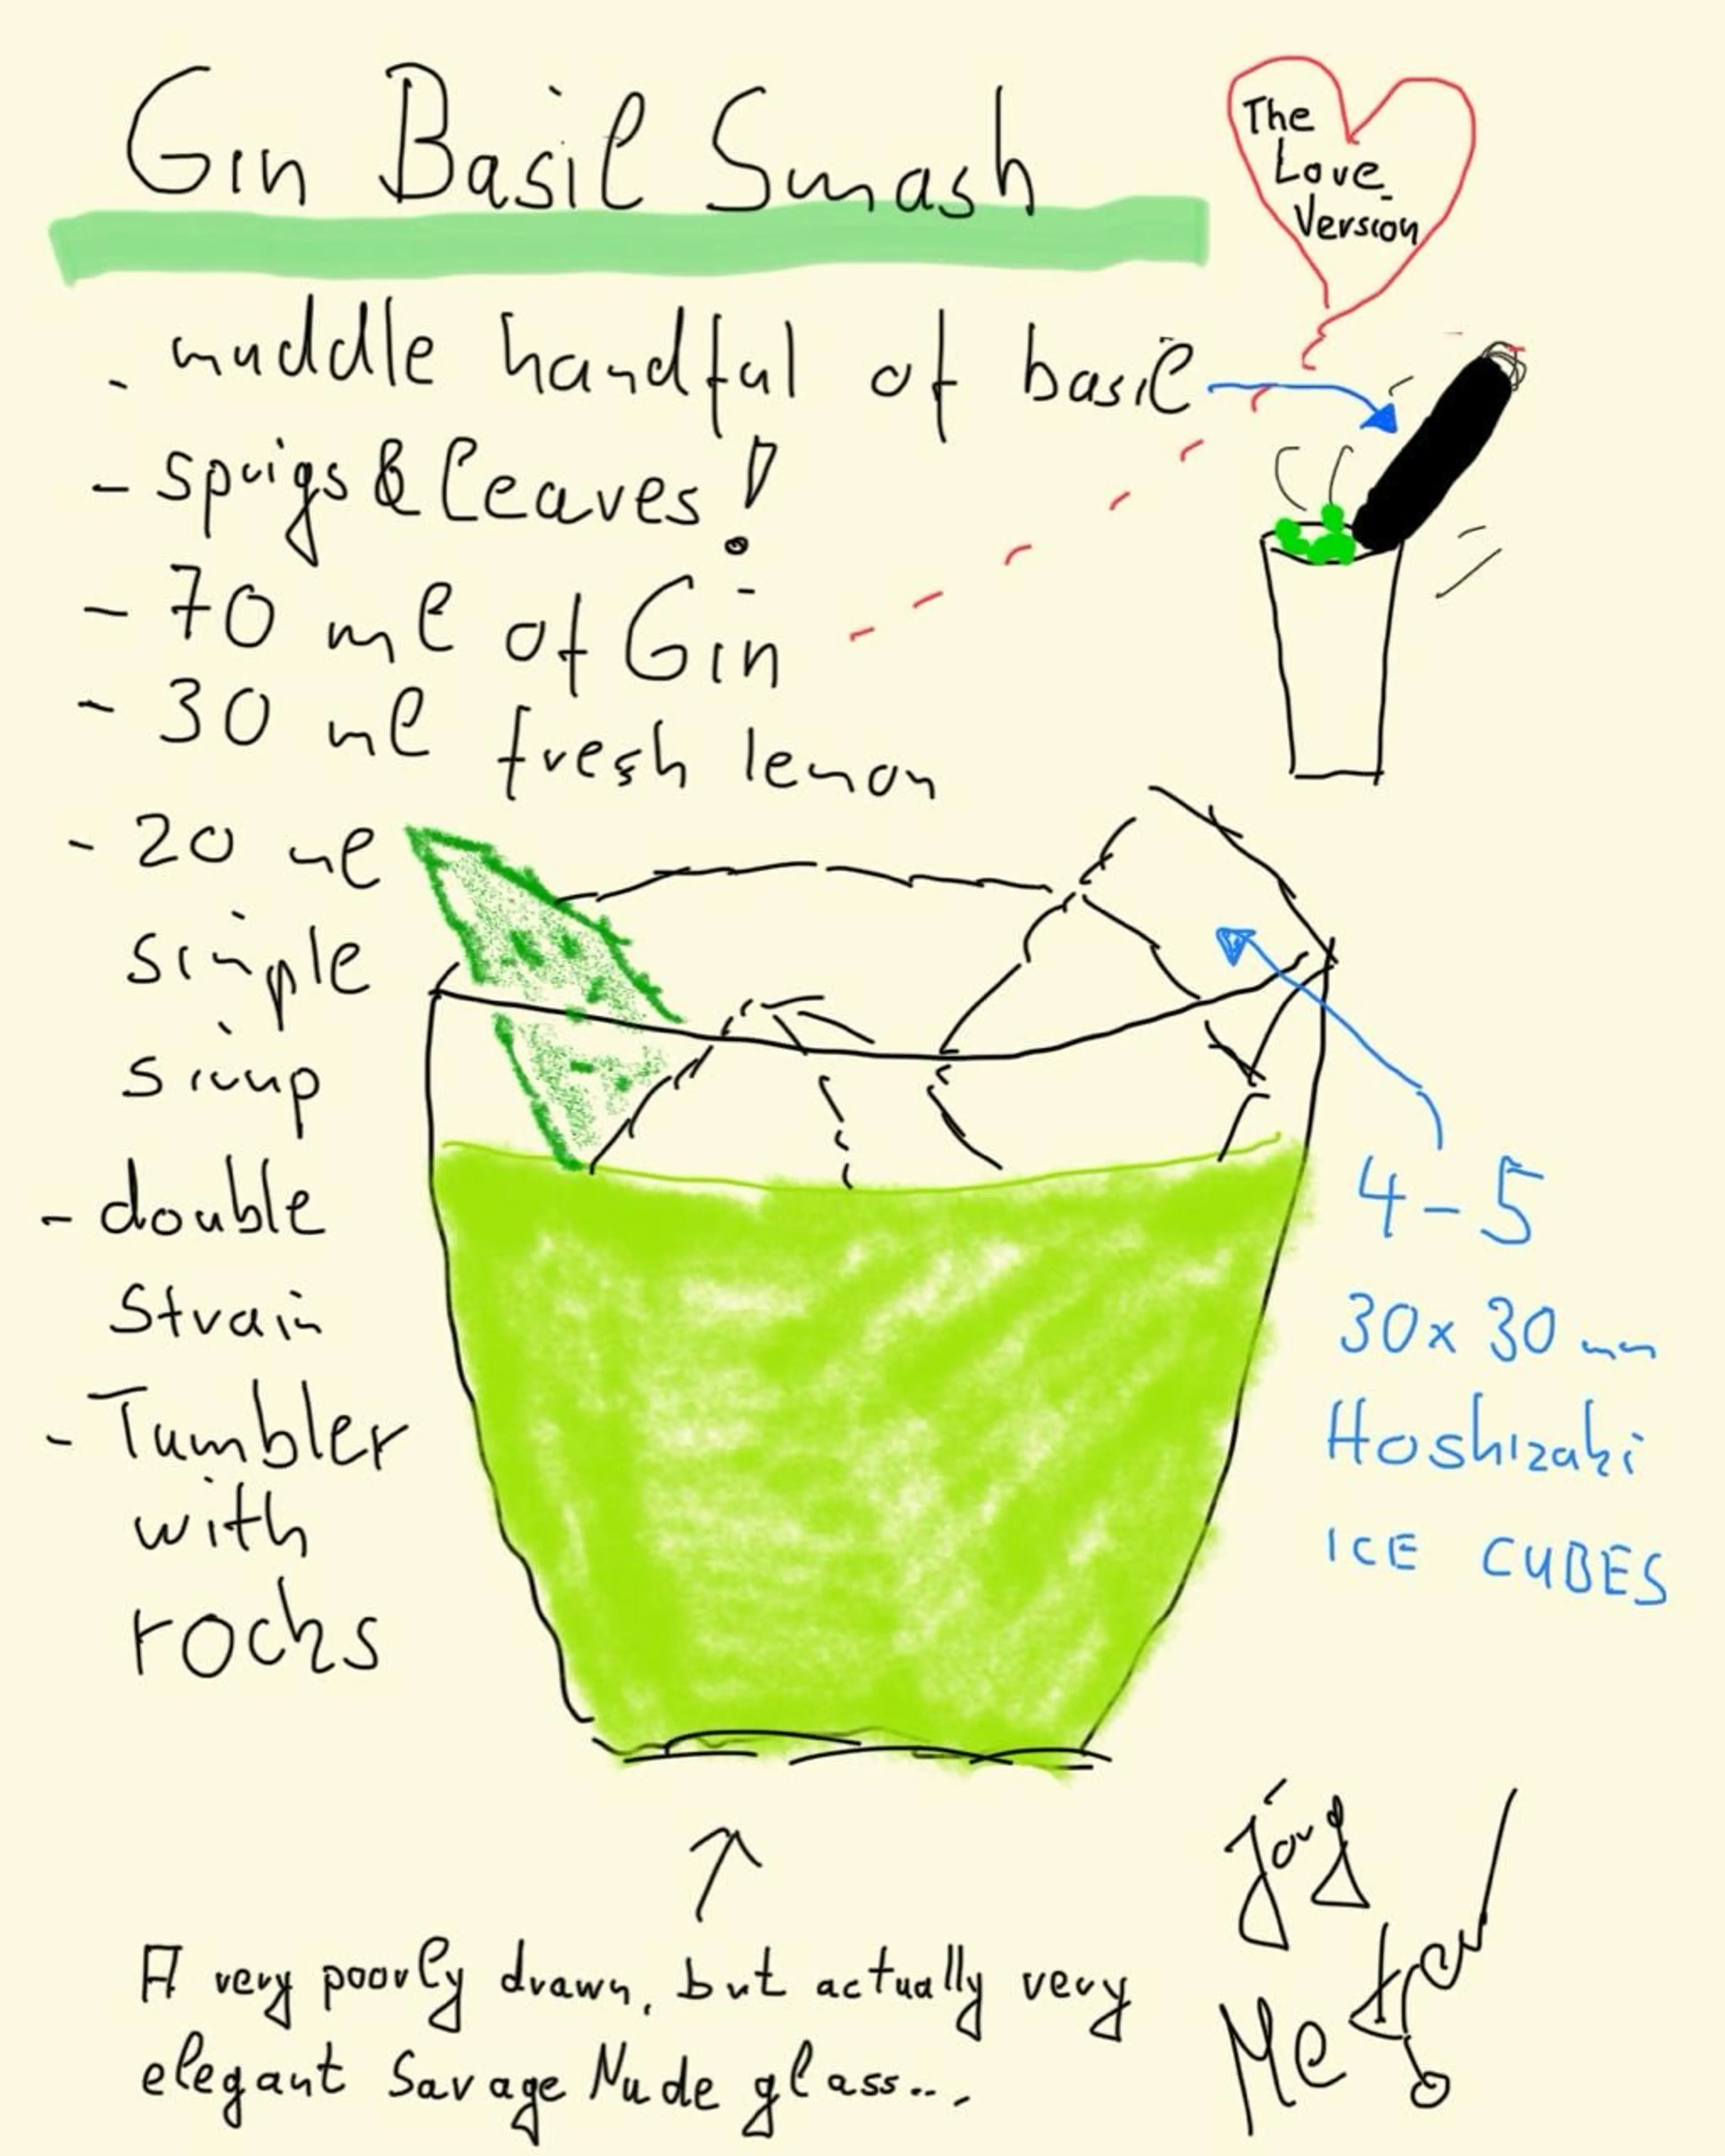 Gin Basil Smash
The
Love
Version
- muddle handful of basil
- sprigs & leaves!
- 70 ml of Gin
- 30 ml fresh lemon
- 20 ml
simple
sirup
- double
strain
- Tumbler
with
rocks
4-5
30x30 mm
Hoshizaki
ICE CUBES
A very poorly drawn, but actually very
elegant Savage Nude glass...